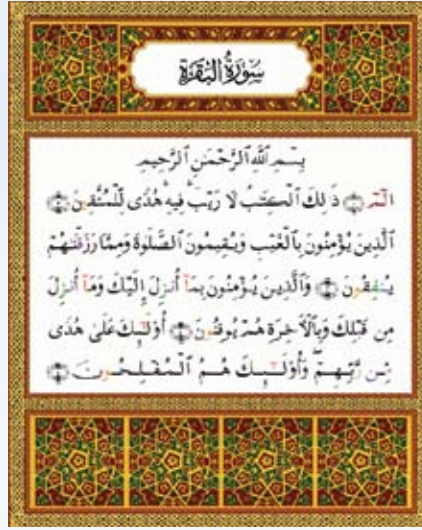 سُورَةُ الْبَقَرَةِ
بِسْمِ ٱللَّهِ ٱلرَّحْمَٰنِ ٱلرَّحِيمِ
الٓمٓ ۝ ذَٰلِكَ ٱلْكِتَٰبُ لَا رَيْبَ ۛ فِيهِ ۛ هُدًى لِّلْمُتَّقِينَ ۝
ٱلَّذِينَ يُؤْمِنُونَ بِٱلْغَيْبِ وَيُقِيمُونَ ٱلصَّلَوٰةَ وَمِمَّا رَزَقْنَٰهُمْ
يُنفِقُونَ ۝ وَٱلَّذِينَ يُؤْمِنُونَ بِمَآ أُنزِلَ إِلَيْكَ وَمَآ أُنزِلَ
مِن قَبْلِكَ وَبِٱلْأَخِرَةِ هُمْ يُوقِنُونَ ۝ أُو۟لَٰٓئِكَ عَلَىٰ هُدًى
مِّن رَّبِّهِمْ ۖ وَأُو۟لَٰٓئِكَ هُمُ ٱلْمُفْلِحُونَ ۝